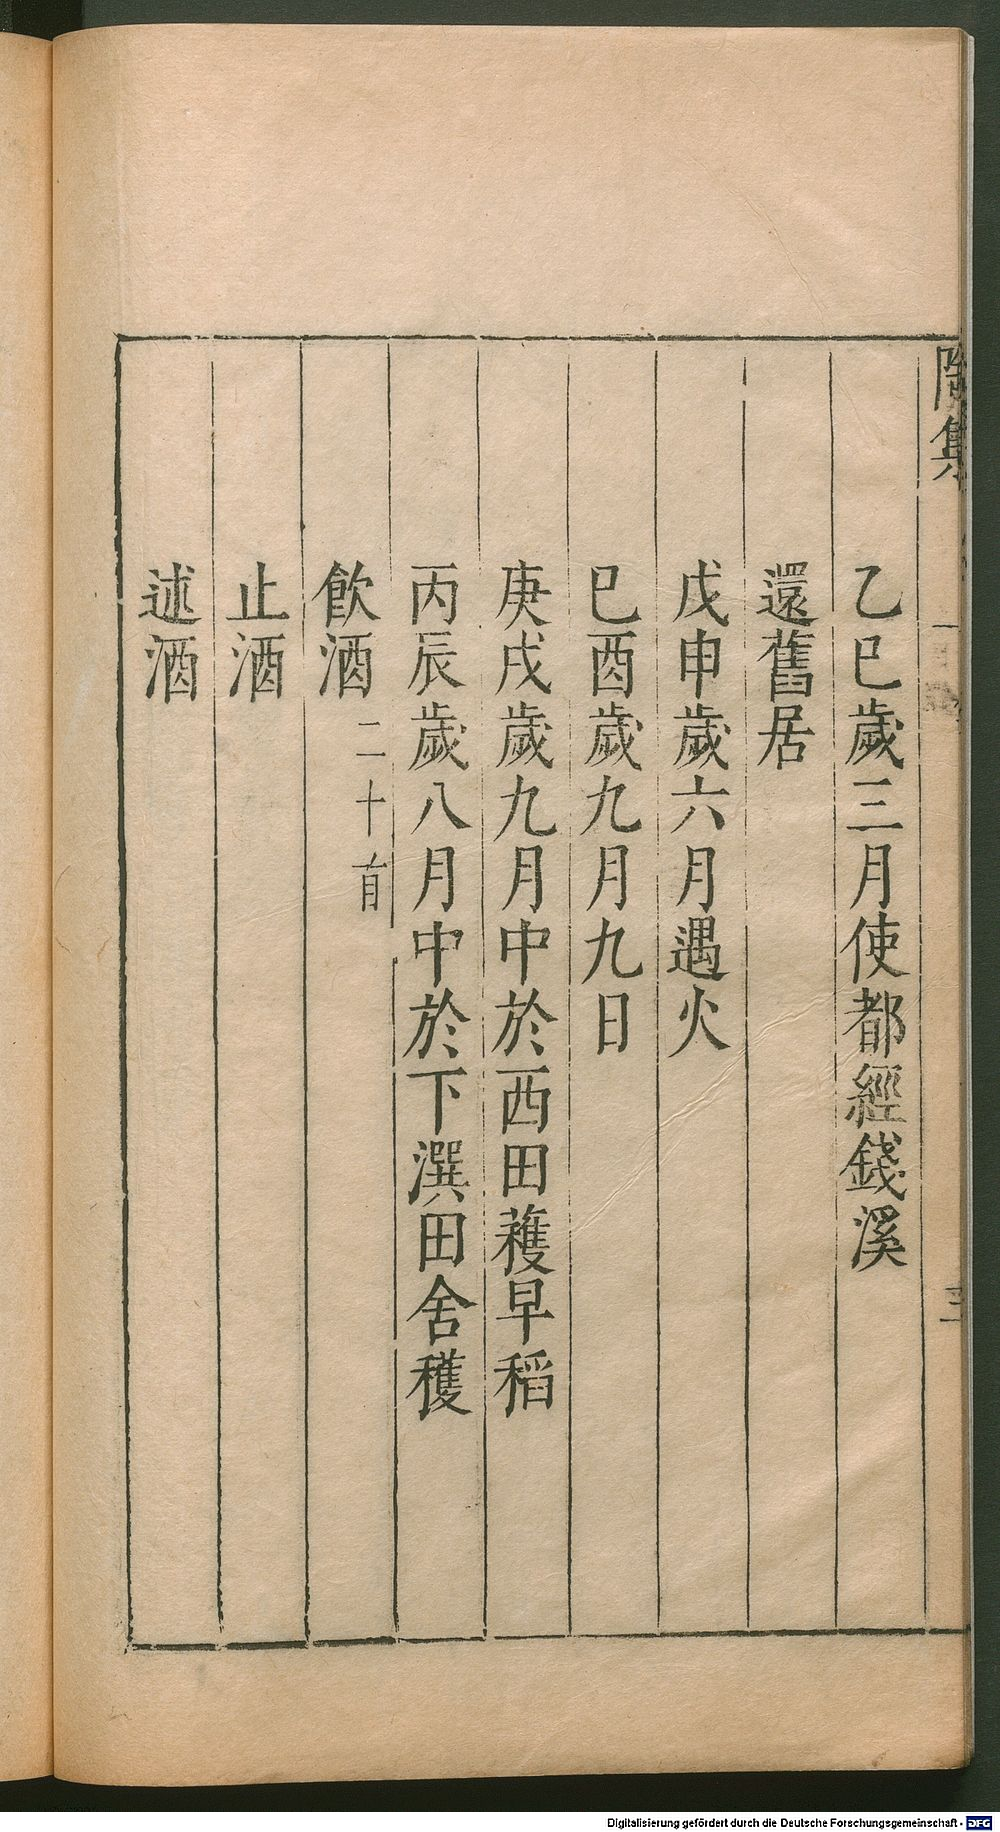 陶集
三
乙巳歲三月使都經錢溪
還舊居
戊申歲六月遇火
巳酉歲九月九日
庚戌歲九月中於西田穫早稻
丙辰歲八月中於下潠田舍穫
飲酒二十首
止酒
述酒
Digitalisierung gefördert durch die Deutsche Forschungsgemeinschaft - DFG